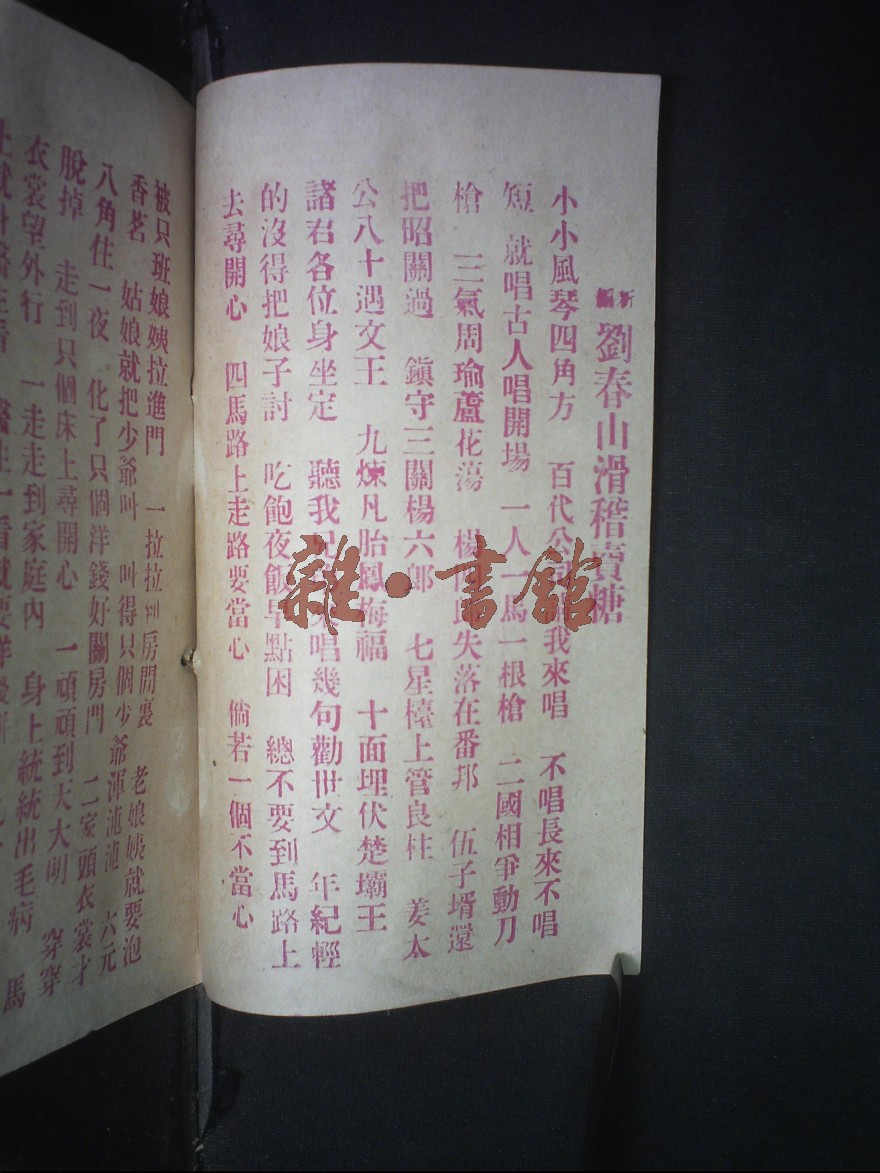 新編
劉春山滑稽賣糖
小小風琴四角方 百代公 我來唱 不唱長來不唱
短 就唱古人唱開場 一人一馬一根槍 二國相爭動刀
槍 三氣周瑜蘆花蕩 楊 失落在番邦 伍子壻還
把昭關過 鎮守三關楊六郎 七星檯上管良柱 姜太
公八十遇文王 九煉凡胎鳳梅福 十面埋伏楚壩王
諸君各位身坐定 聽我 唱幾句勸世文 年紀輕
的沒得把娘子討 吃飽夜飯早點困 總不要到馬路上
去尋開心 四馬路上走路要當心 倘若一個不當心
被只班娘姨拉進門 一拉拉到房間裏 老娘姨就要泡
香茗 姑娘就把少爺叫 叫得只個少爺渾滷滷 六元
八角住一夜 化了只個洋錢好關房門 二家頭衣裳才
脫掉 走到只個床上尋開心 一頑頑到天大明 穿穿
衣裳望外行 一走走到家庭內 身上統統出毛病 馬
上就 醫生看 醫生一看就要洋
雜·書館